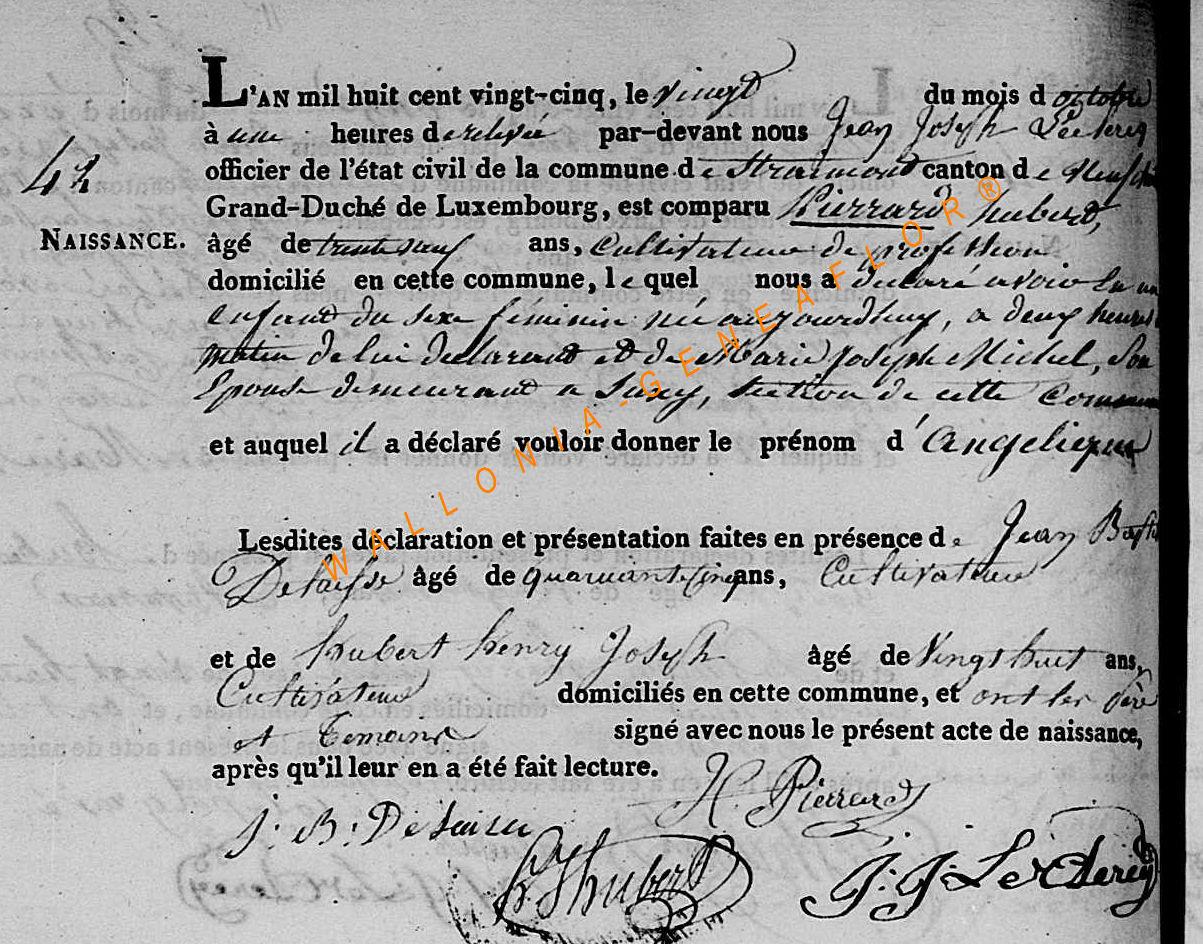 L'AN mil huit cent vingt-cinq, le vingt du mois d octobre
à une heures de relevée par-devant nous Jean Joseph Leclercq
officier de l'état civil de la commune de Straimont canton de Neufch
Grand-Duché de Luxembourg, est comparu Pierrard hubert,
42
NAISSANCE.
âgé de trente neuf ans, Cultivateur de profession
domicilié en cette commune, lequel nous a déclaré avoir eu un
enfant du sexe féminin né aujourdhuy, a deux heures
matin de lui declarant et de Marie Joseph Michel, son
Epouse demeurant a Suxy, section de cette Commune
et auquel il a déclaré vouloir donner le prénom d'Angelique
Lesdites déclaration et présentation faites en présence de Jean Bapti
âgé de quarante cinq ans, Cultivateur
et de hubert henry Joseph âgé de Vingt huit ans,
Cultivateur domiciliés en cette commune, et ont les père
et temoins signé avec nous le présent acte de naissance,
après qu'il leur en a été fait lecture.
H Pierrard
J. B. 
h. J hubert
J. J. Leclercq
WALLONIA-GENEAFLOR®